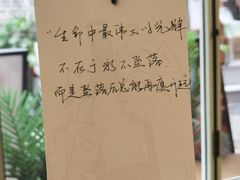 “生命中最伟大的光辉
不在于永不坠落
而是坠落后总能再度升起”